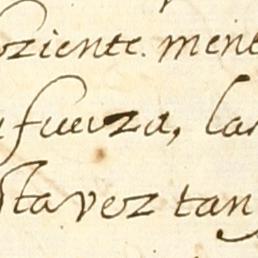 oziente mente
fuerza, las
sta vez tan